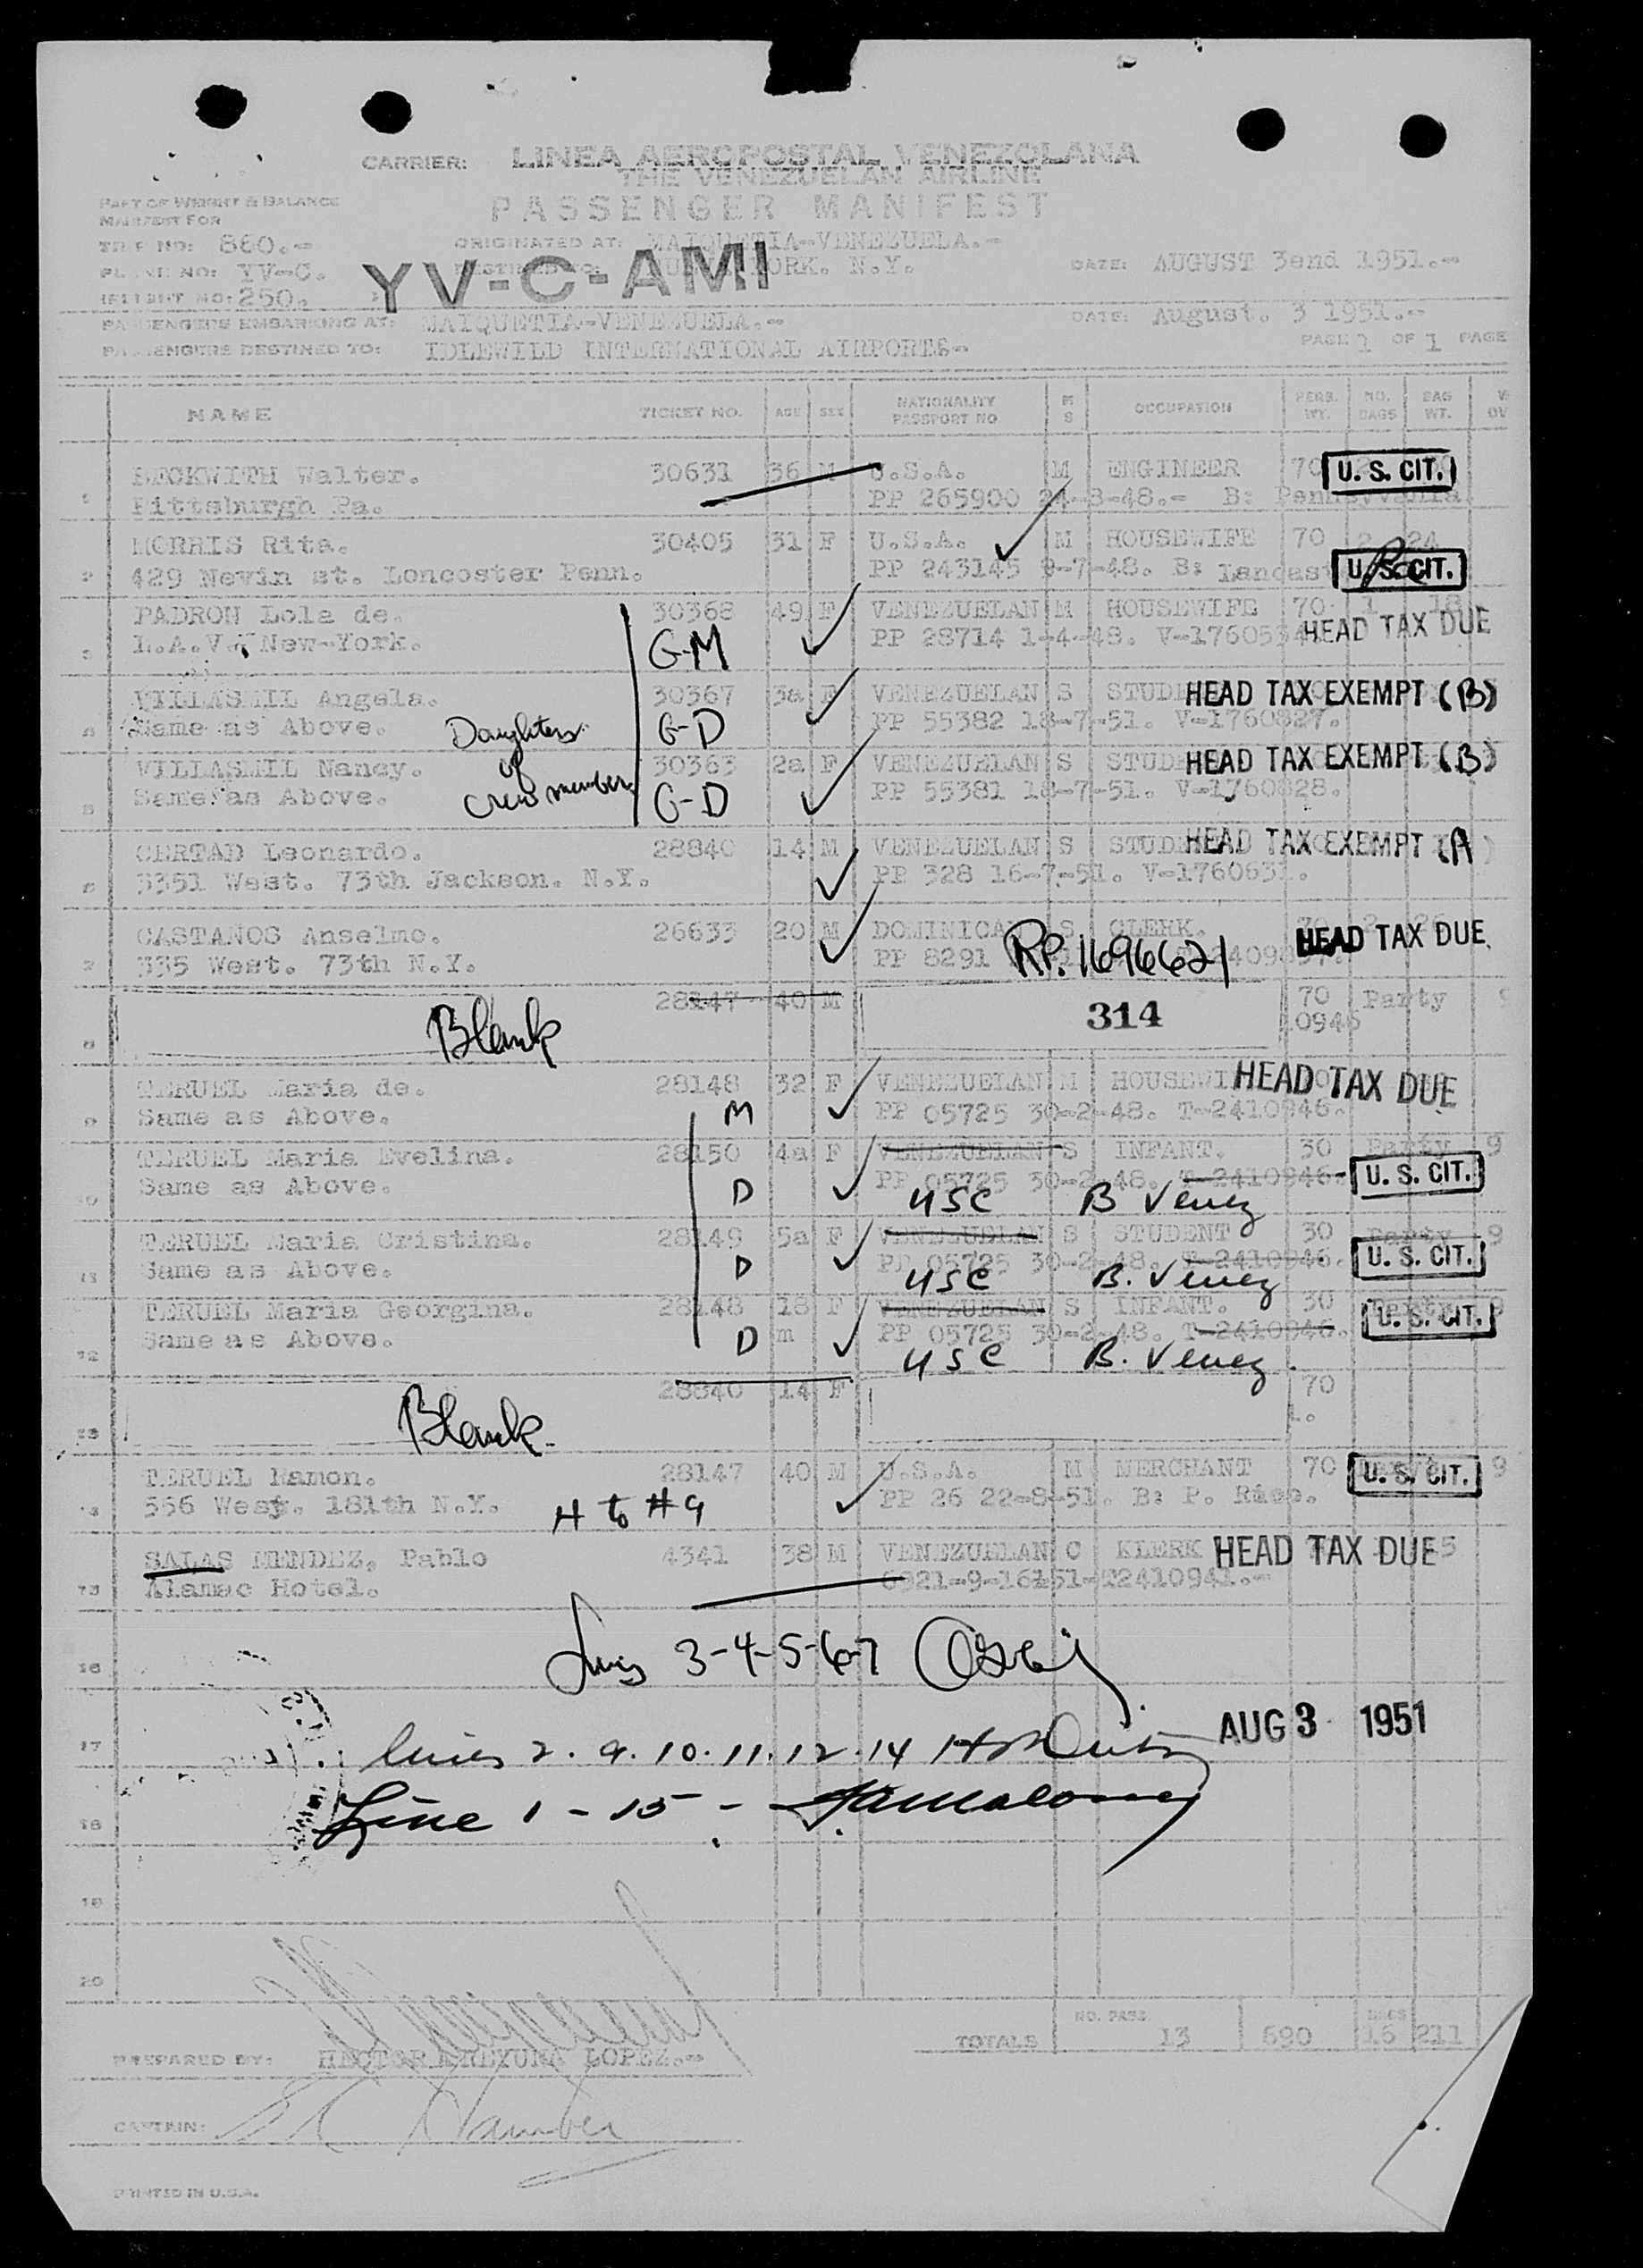 CARRIER: LINEA AEROPOSTAL VENEZOLANA
THE VENEZUELAN AIRLINE
PASSENGER MANIFEST
PART OF WEIGHT & BALANCE
MANIFEST FOR
TRIP NO: 860.-
ORIGINATED AT: MAIQUETIA-VENEZUELA.-
PLANE NO: YV-C.
YV-C-AMI
YORK. N.Y.
DATE: AUGUST 3end 1951.-
FLIGHT NO: 250.
PASSENGERS EMBARKING AT: MAIQUETIA-VENEZUELA.-
DATE: August. 3 1951.-
PASSENGERS DESTINED TO: IDLEWILD INTERNATIONAL AIRPORTS-
PAGE 1 OF 1 PAGE
NAME TICKET NO. AGE SEX NATIONALITY PASSPORT NO M S OCCUPATION PERS. WT. NO. BAGS BAG WT.
1 BECKWITH Walter. 30631 36 M U.S.A. M ENGINEER 70 U.S. CIT.
Pittsburgh Pa. PP 265900 24-8-48.- B:
2 MORRIS Rita. 30405 31 F U.S.A. M HOUSEWIFE 70 2 24
429 Nevin st. Loncoster Penn. PP 243145 9-7-48. B: Lancast U.S. CIT.
3 PADRON Lola de. 30368 49 F VENEZUELAN M HOUSEWIFE 70 1 18
L.A.V. New-York. G-M PP 28714 1-4-48. HEAD TAX DUE
4 VILLASMIL Angela. 30367 3a F VENEZUELAN S STUD HEAD TAX EXEMPT (B)
Same as Above. Daughters G-D PP 55382 18-7-51. V-1760827.
5 VILLASMIL Nancy. of 30363 2a F VENEZUELAN S STUD HEAD TAX EXEMPT (B)
Same as Above. crew member G-D PP 55381 18-7-51. V-1760828.
6 CERTAD Leonardo. 28840 14 M VENEZUELAN S STUD HEAD TAX EXEMPT (A)
3351 West. 73th Jackson. N.Y. PP 328 16-7-51. V-1760631.
7 CASTANOS Anselmo. 26633 20 M DOMINICA S CLERK. HEAD TAX DUE
335 West. 73th N.Y. PP 8291 RP. 1696621
8 Blank 28147 40 M 314 70 Party
0946
9 TERUEL Maria de. 28148 32 F VENEZUELAN M HOUSEWI HEAD TAX DUE
Same as Above. M PP 05725 30-2-48. T-2410946.
10 TERUEL Maria Evelina. 28150 4a F VENEZUELAN S INFANT. 30 Party 9
Same as Above. D PP 05725 30-2-48. T-2410946- U.S. CIT.
USC B Venez
11 TERUEL Maria Cristina. 28149 5a F VENEZUELAN S STUDENT 30 Party 9
Same as Above. D PP 05725 30-2-48. T-2410946. U.S. CIT.
USC B. Venez
12 TERUEL Maria Georgina. 28148 18 F VENEZUELAN S INFANT. 30
Same as Above. D m PP 05725 30-2-48. T-2410946. U.S. CIT.
USC B. Venez.
13 Blank. 28840 14 F 70
14 TERUEL Ramon. 28147 40 M U.S.A. M MERCHANT 70 U.S. CIT. 9
556 West. 181th N.Y. H to #9 PP 26 22-8-51. B: P. Rico.
15 SALAS MENDEZ, Pablo 4341 38 M VENEZUELAN C KLERK HEAD TAX DUE
Alamac Hotel. 6921-9-16151-T2410941.-
16 3-4-5-6-7
17 lines 2. 9. 10. 11. 12. 14
AUG 3 1951
18 Line 1 - 15 -
19
20
TOTALS NO. PASS. 13 690 BAGS 16 211
PREPARED BY: HECTOR LOPEZ.-
CAPTAIN:
PRINTED IN U.S.A.